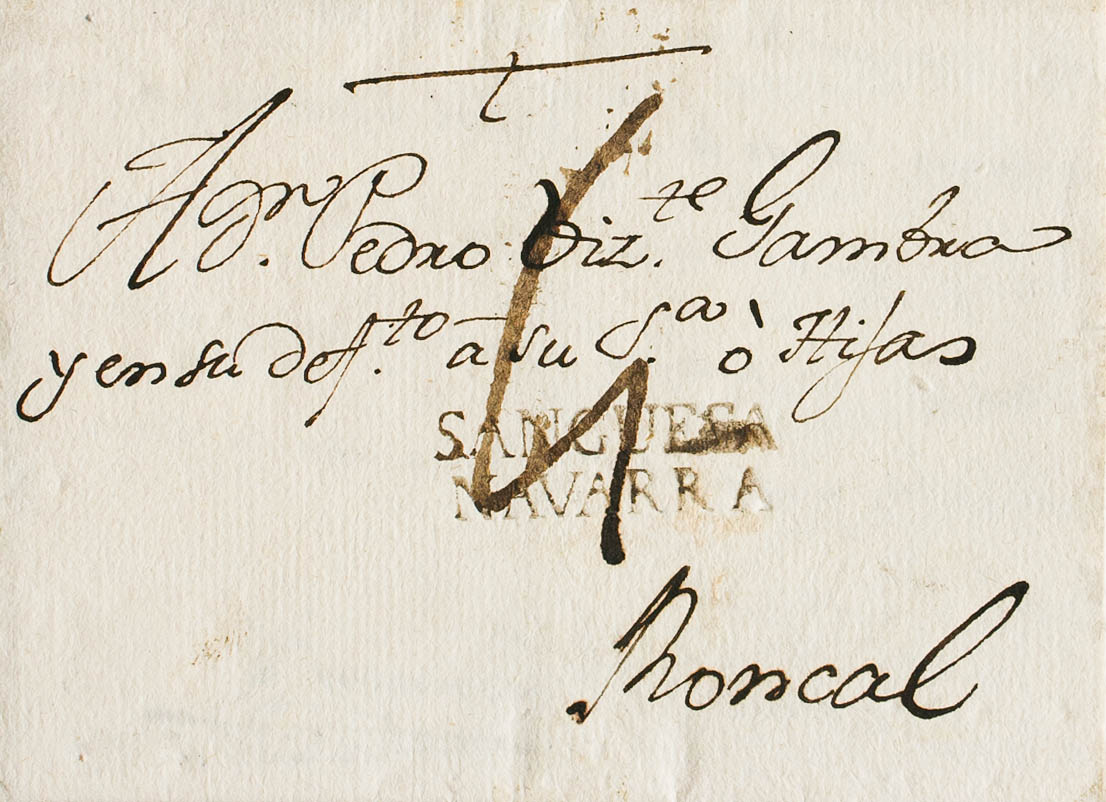 A Dn. Pedro Viz.te Gambra
y en su def.to a su S.ra ò Hijas
SANGUESA
NAVARRA
Roncal